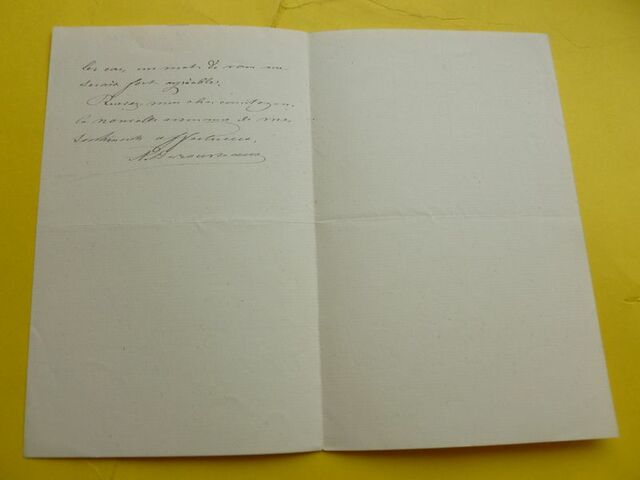 cas, un mot de vous me
serait fort agréable.
Recevez, mon cher concitoyen,
la nouvelle assurance de mes
sentiments affectueux.